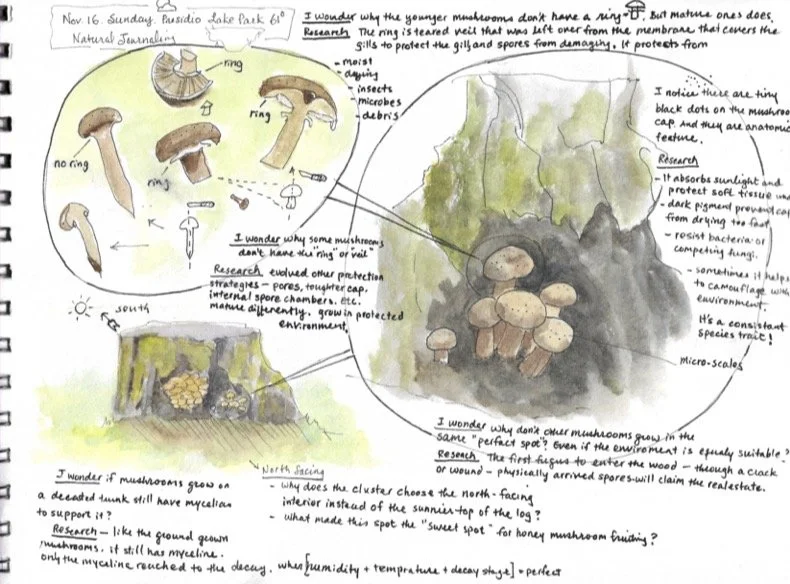 Nov 16. Sunday. Presidio Lake Park 61°
Natural Journaling
I wonder why the younger mushrooms don't have a ring. But mature ones does.
Research The ring is teared veil that was left over from the membrane that covers the
gills to protect the gill and spores from damaging. It protects from
- moist
- drying
- insects
- microbes
- debris
ring
ring
no ring
ring
I wonder why some mushrooms
don't have the "ring" or veil"
Research evolved other protection
strategies - pores, toughter cap,
internal spore chambers. etc.
mature differently. grow in protected
environment.
I notice there are tiny
black dots on the mushroo
cap. And they are anatomic
feature.
Research
- It absorbs sunlight and
protect soft tissue
- dark pigment prevent cap
from drying too fast
- resist bacteria or
competing fungi.
- sometimes it helps
to camouflage with
environment.
It's a consistant
species trait!
micro-scales
south
North facing
I wonder why don't other mushrooms grow in the
same "perfect spot"? Even if the enviroment is equaly suitable?
Reseach. The first fugus to enter the wood - through a crack
or wound - physically arrived spores will claim the realestate.
- why does the cluster choose the north-facing
interior instead of the sunnier top of the log?
- what made this spot the "sweet spot" for honey mushroom fruiting?
I wonder if mushrooms grow on
a decated tunk still have mycelian
to support it?
Research - like the ground grown
mushrooms. it still has myceline.
only the myceline reached to the decay. when [humidity + temprature + decay stage] = perfect